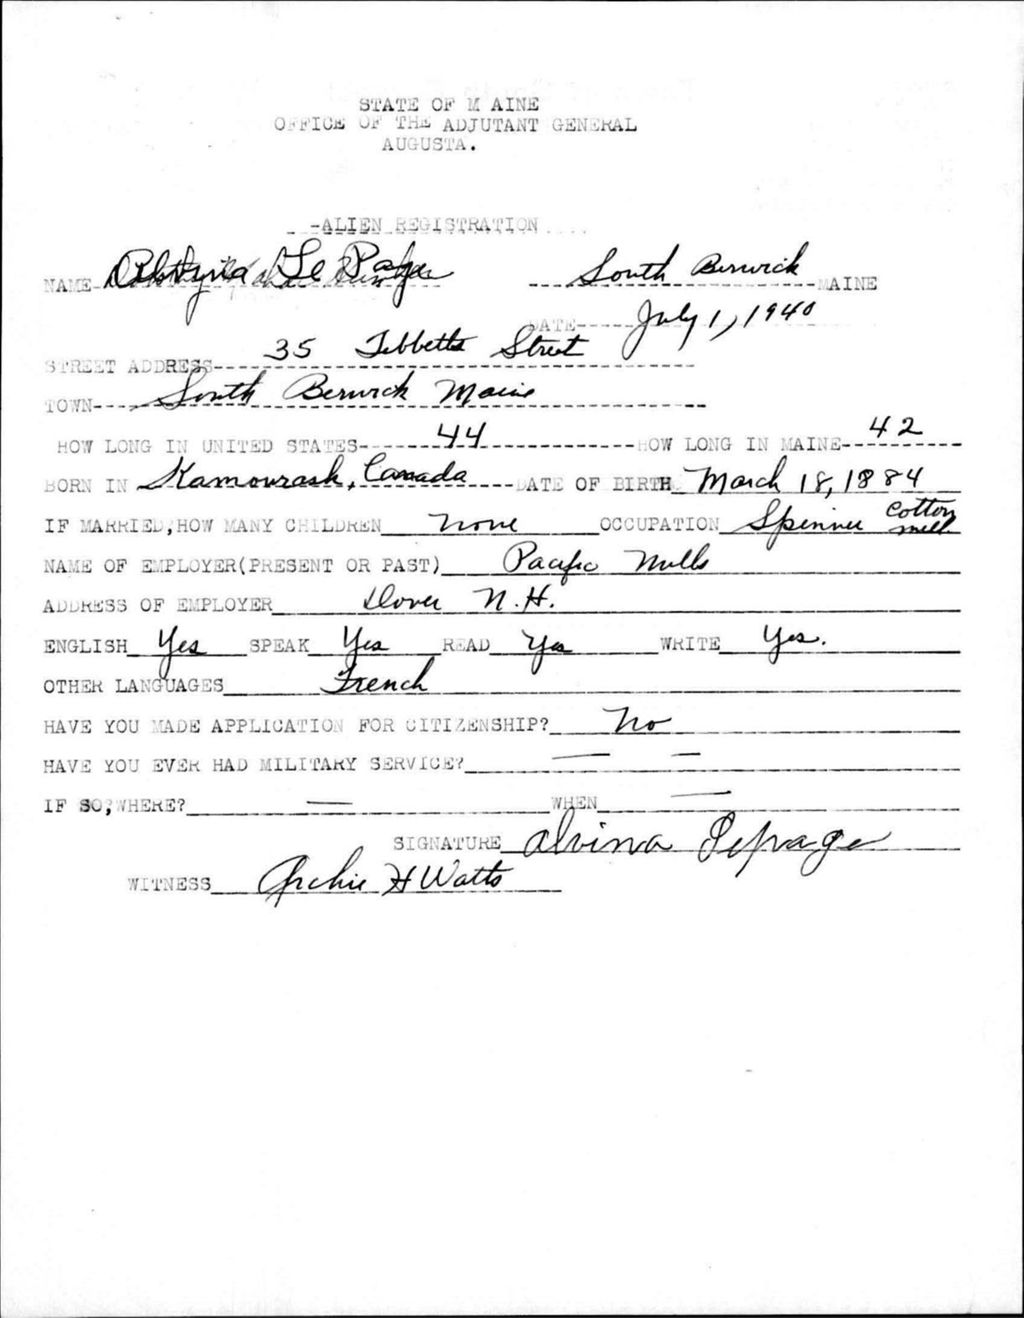 STATE OF MAINE
OFFICE OF THE ADJUTANT GENERAL
AUGUSTA.
ALIEN REGISTRATION
NAME Le Page South Berwick MAINE
DATE July 1, 1940
STREET ADDRESS 35 Tebbetts Street
TOWN South Berwick Maine
HOW LONG IN UNITED STATES 44 HOW LONG IN MAINE 42
BORN IN Kamourask, Canada DATE OF BIRTH March 18, 1884
IF MARRIED, HOW MANY CHILDREN none OCCUPATION Spinner Cotton mill
NAME OF EMPLOYER (PRESENT OR PAST) Pacific Mills
ADDRESS OF EMPLOYER Dover N.H.
ENGLISH Yes SPEAK Yes READ Yes WRITE Yes.
OTHER LANGUAGES French
HAVE YOU MADE APPLICATION FOR CITIZENSHIP? No
HAVE YOU EVER HAD MILITARY SERVICE? — —
IF SO, WHERE? — WHEN —
SIGNATURE Alvina Lepage
WITNESS Archie H Watts